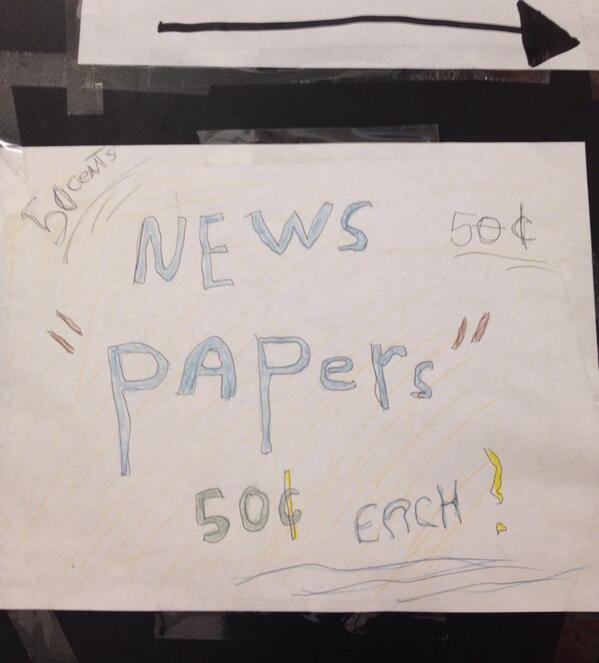 50 cents
NEWS 50¢
"PAPers"
50¢ EACH!